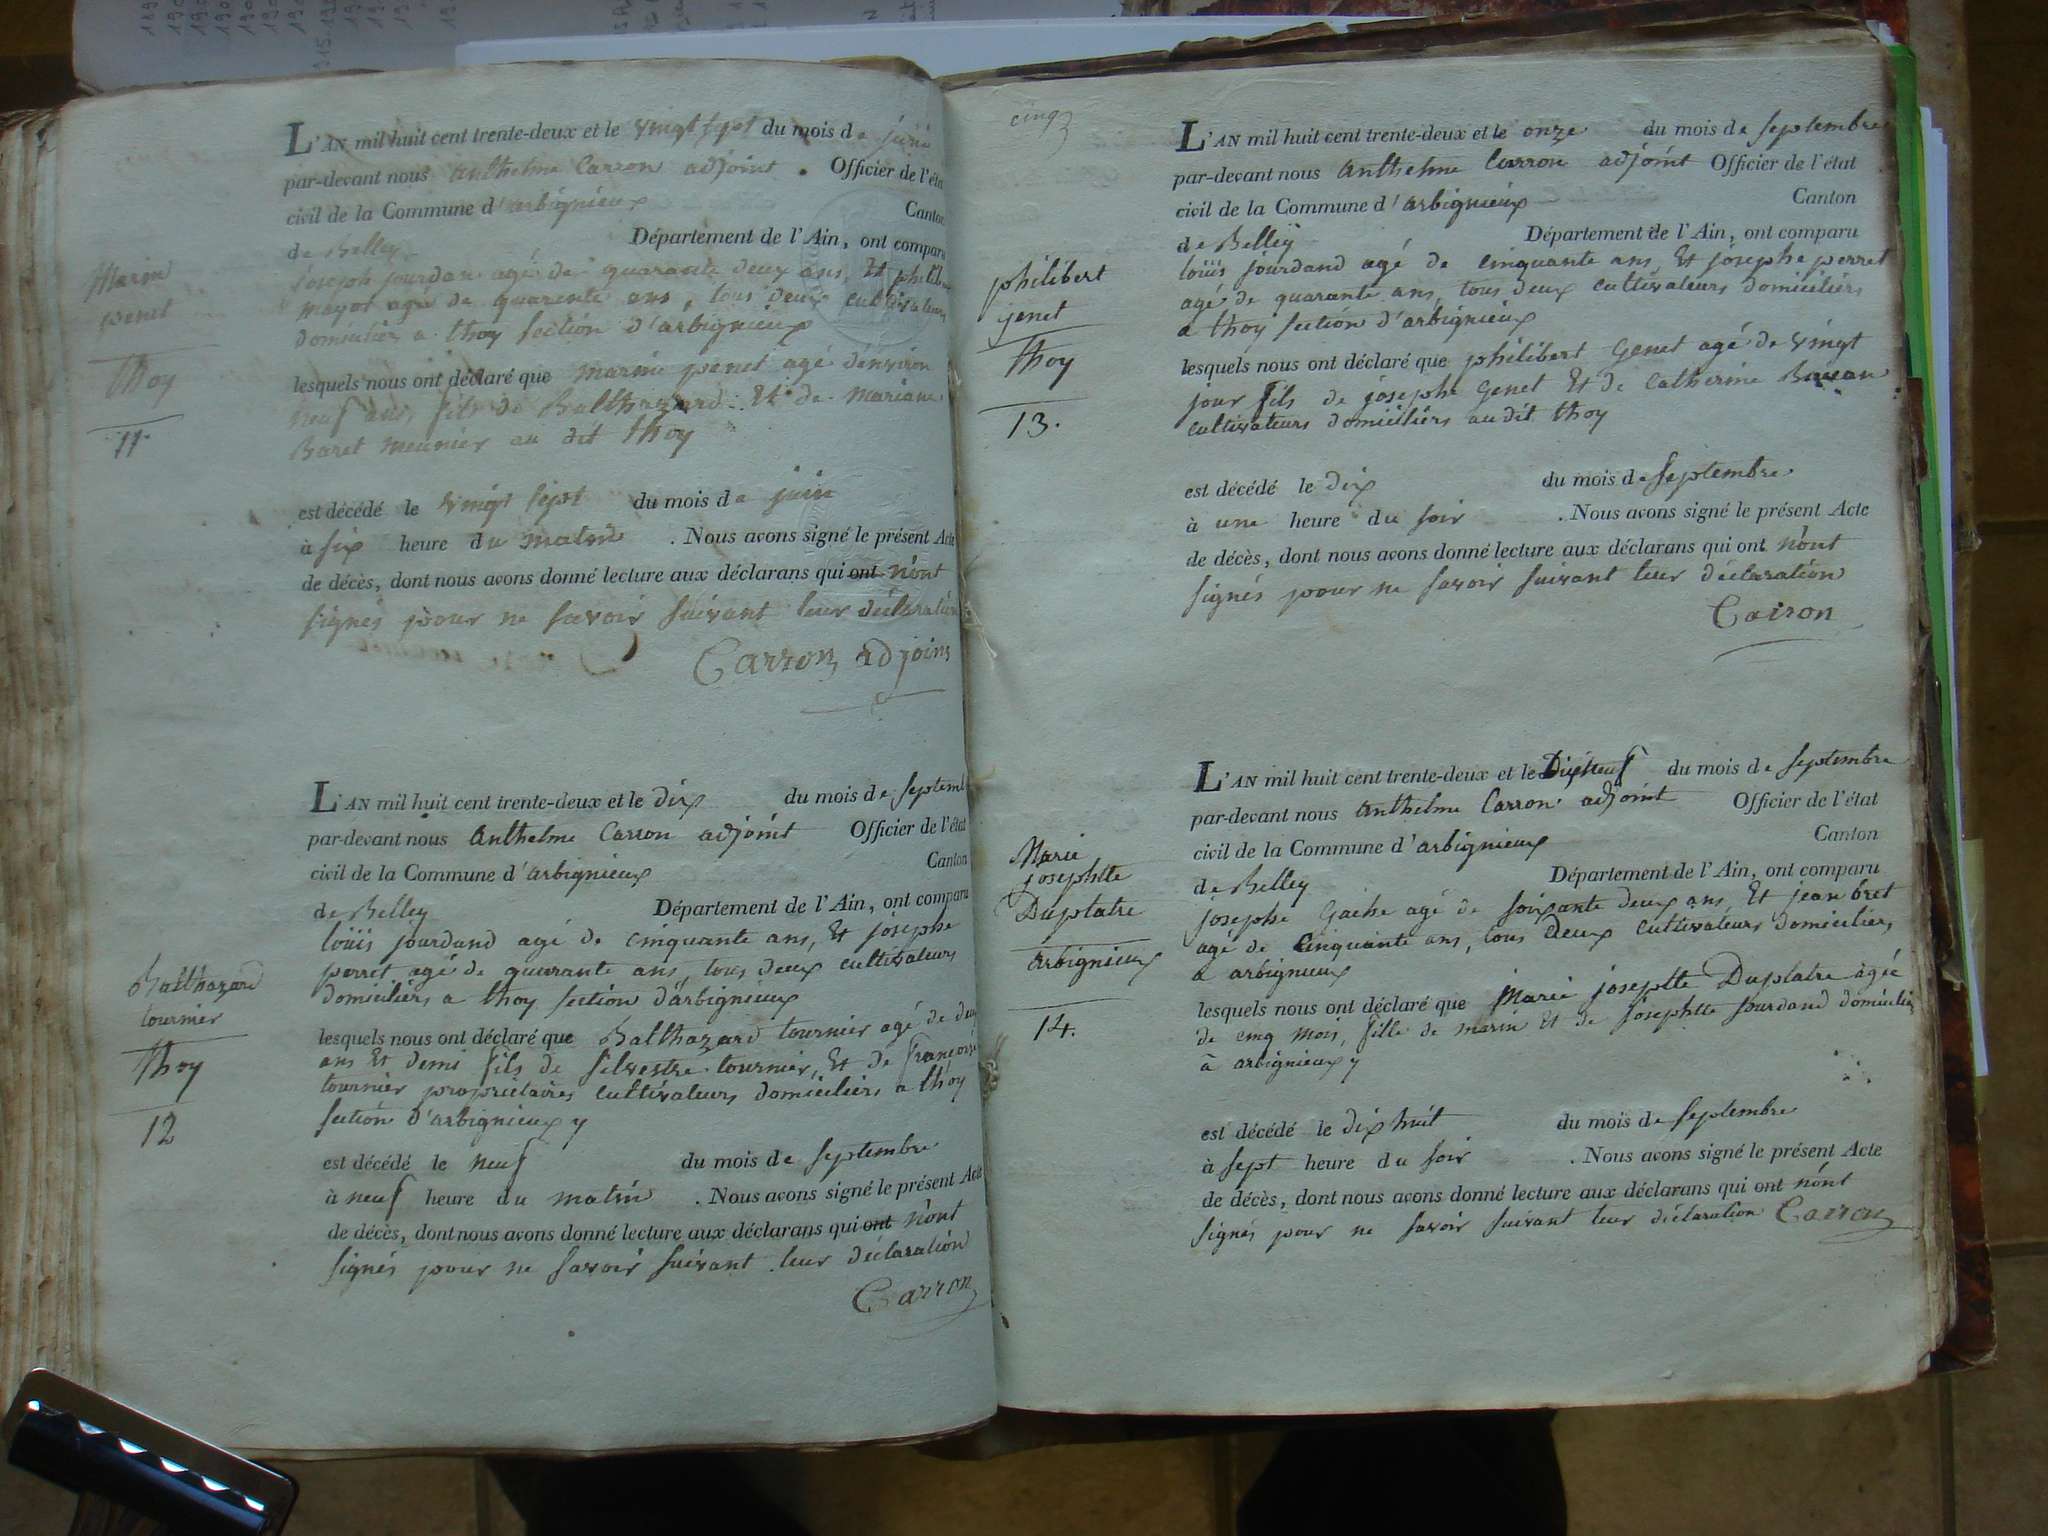 Marin
penet
thoy
11.
L'AN mil huit cent trente-deux et le vingt sept du mois de juin
par-devant nous Anthelme Carron adjoint . Officier de l'état
civil de la Commune d'arbignieux Canton
de Belley Département de l'Ain, ont comparu
joseph jourdan agé de quarante deux ans, Et philib
mayot agé de quarente ans, tous deux cultivateurs
domiciliés a thoy section d'arbignieux
lesquels nous ont déclaré que marin penet agé denviron
neuf ans, fils de Balthazard Et de mariane
Baret meunier au dit thoy
est décédé le vingt sept du mois de juin
à six heure du matin . Nous avons signé le présent Acte
de décès, dont nous avons donné lecture aux déclarans qui ont n'ont
signés pour ne savoir suivant leur déclaration
Carron adjoint
Balthazard
tournier
thoy
12
L'AN mil huit cent trente-deux et le dix du mois de septemb
par-devant nous Anthelme Carron adjoint Officier de l'état
civil de la Commune d'arbignieux Canton
de Belley Département de l'Ain, ont comparu
loüis jourdand agé de cinquante ans, Et josephe
perret agé de quarante ans, tous deux cultivateurs
domiciliés a thoy section d'arbignieux
lesquels nous ont déclaré que Balthazard tournier agé de deux
ans Et demi fils de silvestre tournier, Et de françoise
tournier propriétaires cultivateurs domiciliés a thoy
section d'arbignieux y
est décédé le neuf du mois de septembre
à neuf heure du matin . Nous avons signé le présent Acte
de décès, dont nous avons donné lecture aux déclarans qui ont n'ont
signés pour ne savoir suivant leur déclaration
Carron
cinq
philibert
jenet
thoy
13.
L'AN mil huit cent trente-deux et le onze du mois de septembre
par-devant nous Anthelme Carron adjoint Officier de l'état
civil de la Commune d'arbignieux Canton
de Belley Département de l'Ain, ont comparu
loüis jourdand agé de cinquante ans, Et josephe perret
agé de quarante ans, tous deux cultivateurs domiciliés
a thoy section d'arbignieux
lesquels nous ont déclaré que philibert Genet agé de vingt
jour fils de josephe Genet Et de Catherine
cultivateurs domiciliés audit thoy
est décédé le dix du mois de septembre
à une heure du soir . Nous avons signé le présent Acte
de décès, dont nous avons donné lecture aux déclarans qui ont n'ont
signés pour ne savoir suivant leur déclaration
Carron
Marie
josephtte
Duplatre
arbignieux
14.
L'AN mil huit cent trente-deux et le Dixneuf du mois de septembre
par-devant nous Anthelme Carron adjoint Officier de l'état
civil de la Commune d'arbignieux Canton
de Belley Département de l'Ain, ont comparu
josephe Gache agé de soixante deux ans, Et jean bret
agé de cinquante ans, tous deux cultivateurs domiciliés
a arbignieux
lesquels nous ont déclaré que Marie josephtte Duplatre agée
de cinq mois, fille de marin Et de josephtte jourdand domicilié
à arbignieux y
est décédé le dix huit du mois de septembre
à sept heure du soir . Nous avons signé le présent Acte
de décès, dont nous avons donné lecture aux déclarans qui ont n'ont
signés pour ne savoir suivant leur déclaration Carron